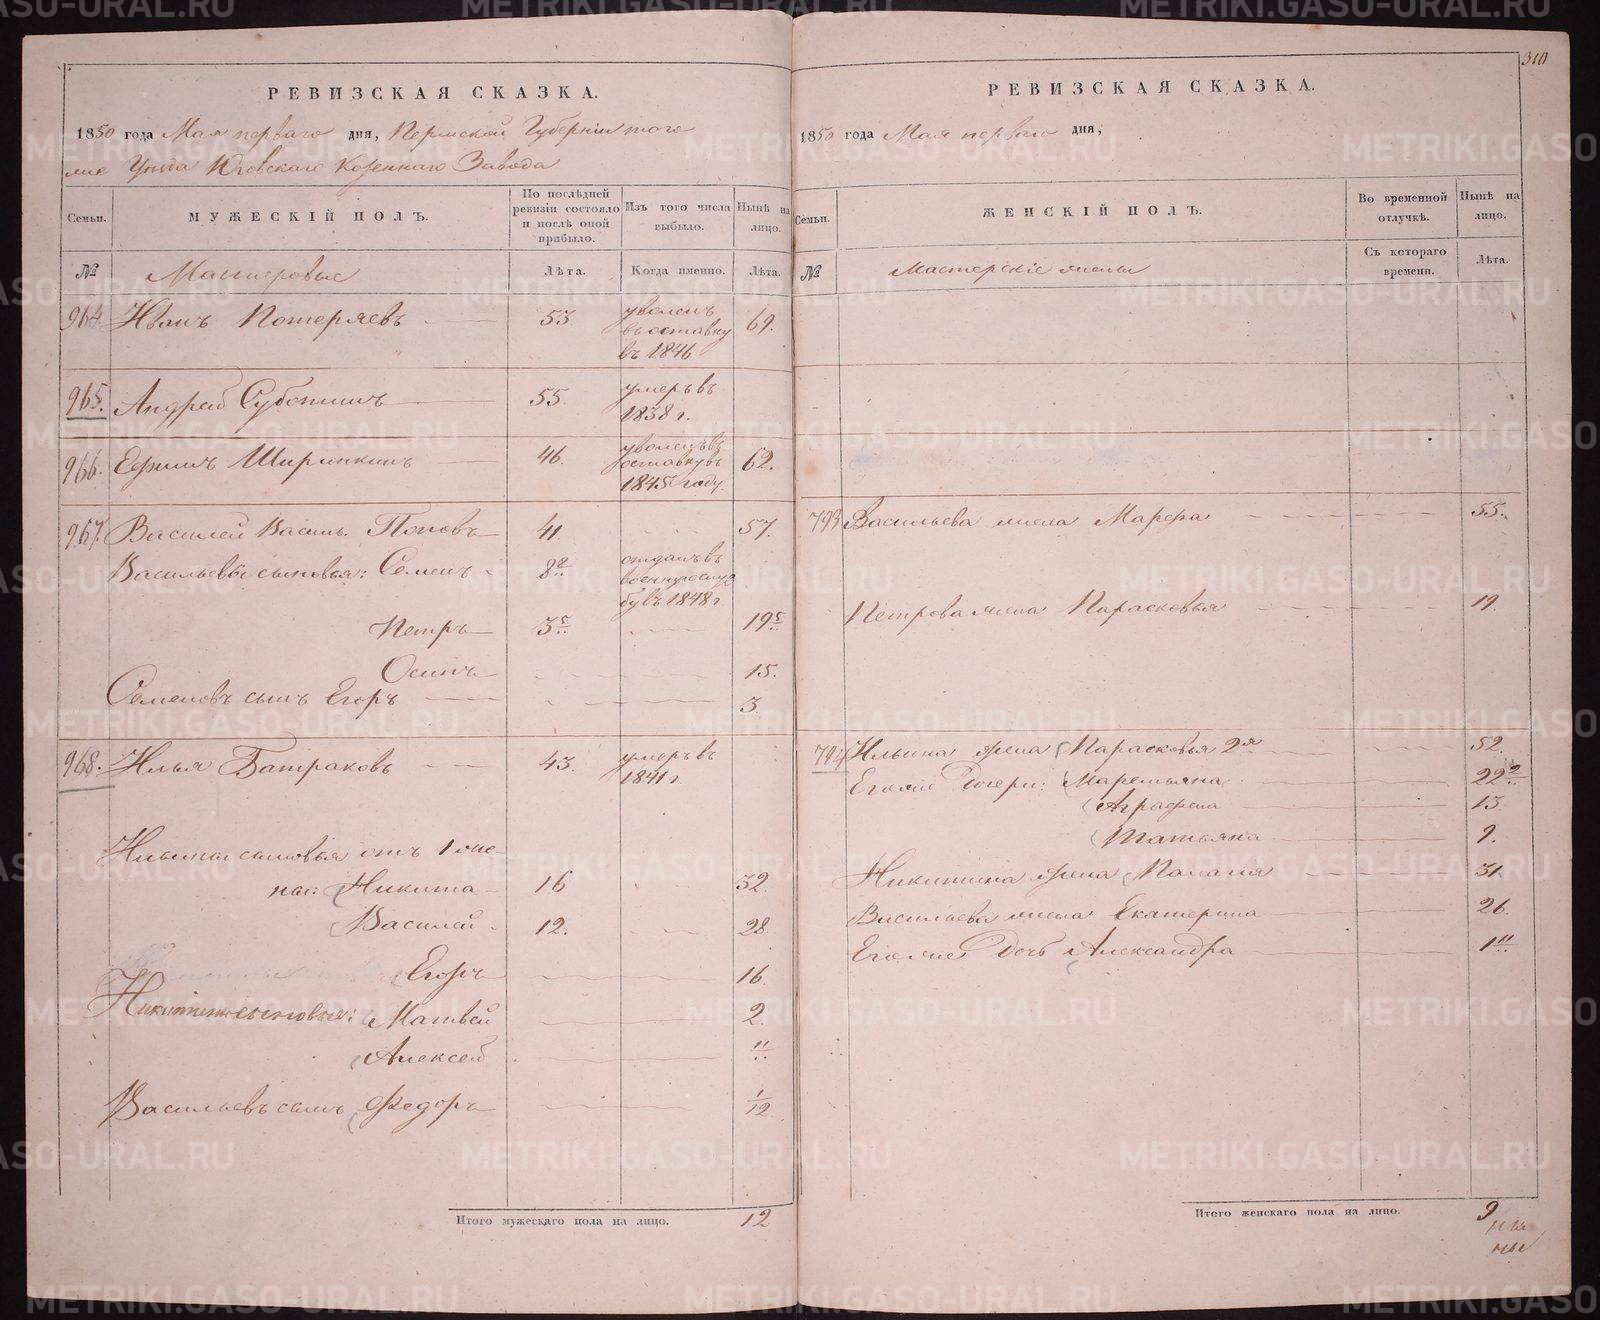 310
РЕВИЗСКАЯ СКАЗКА.
1850 года Мая перваго дня, Пермской Губерніи того
же Юговскаго Казеннаго Завода
Семьи.
МУЖЕСКІЙ ПОЛЪ.
По послѣдней ревизіи состояло и послѣ оной прибыло.
Изъ того числа выбыло.
Нынѣ на лицо.
№
Мастеровые
Лѣта.
Когда именно.
Лѣта.
964. Иванъ Потеряевъ 53 уволенъ въ отставку въ 1846 69.
965. Андрей Субботинъ 55. умеръ въ 1838 г.
966. Ефимъ Ширинкинъ 46. уволенъ въ отставку въ 1845 году 62.
967. Василей Васил. Поповъ 41. 57.
Васильевы сыновья: Семенъ 8 отданъ въ военную службу въ 1848 г
Петръ 3 19
Осипъ 15.
Семеновъ сынъ Егоръ 3.
968. Илья Батраковъ 43. умеръ въ 1841 г.
Ильины сыновья отъ 1 же
ны: Никита 16 32.
Василей 12. 28.
Егоръ 16
Никитины сыновья: Матвей 2.
Алексей 11
Васильевъ сынъ Федоръ 1/12
Итого мужескаго пола на лицо. 12
РЕВИЗСКАЯ СКАЗКА.
1850 года Мая перваго дня,
Семьи.
ЖЕНСКІЙ ПОЛЪ.
Во временной отлучкѣ.
Нынѣ на лицо.
№
Мастерскіе жены
Съ котораго времени.
Лѣта.
793 Васильева жена Марфа 55.
Петрова жена Парасковья 19.
794 Ильина жена Парасковья 2я 52.
Егожъ дочери: Маремьяна 22
Аграфена 13
Татьяна 9.
Никитина жена Палагея 31.
Васильева жена Екатерина 26.
Дочь Александра 1
Итого женскаго пола на лицо. 9